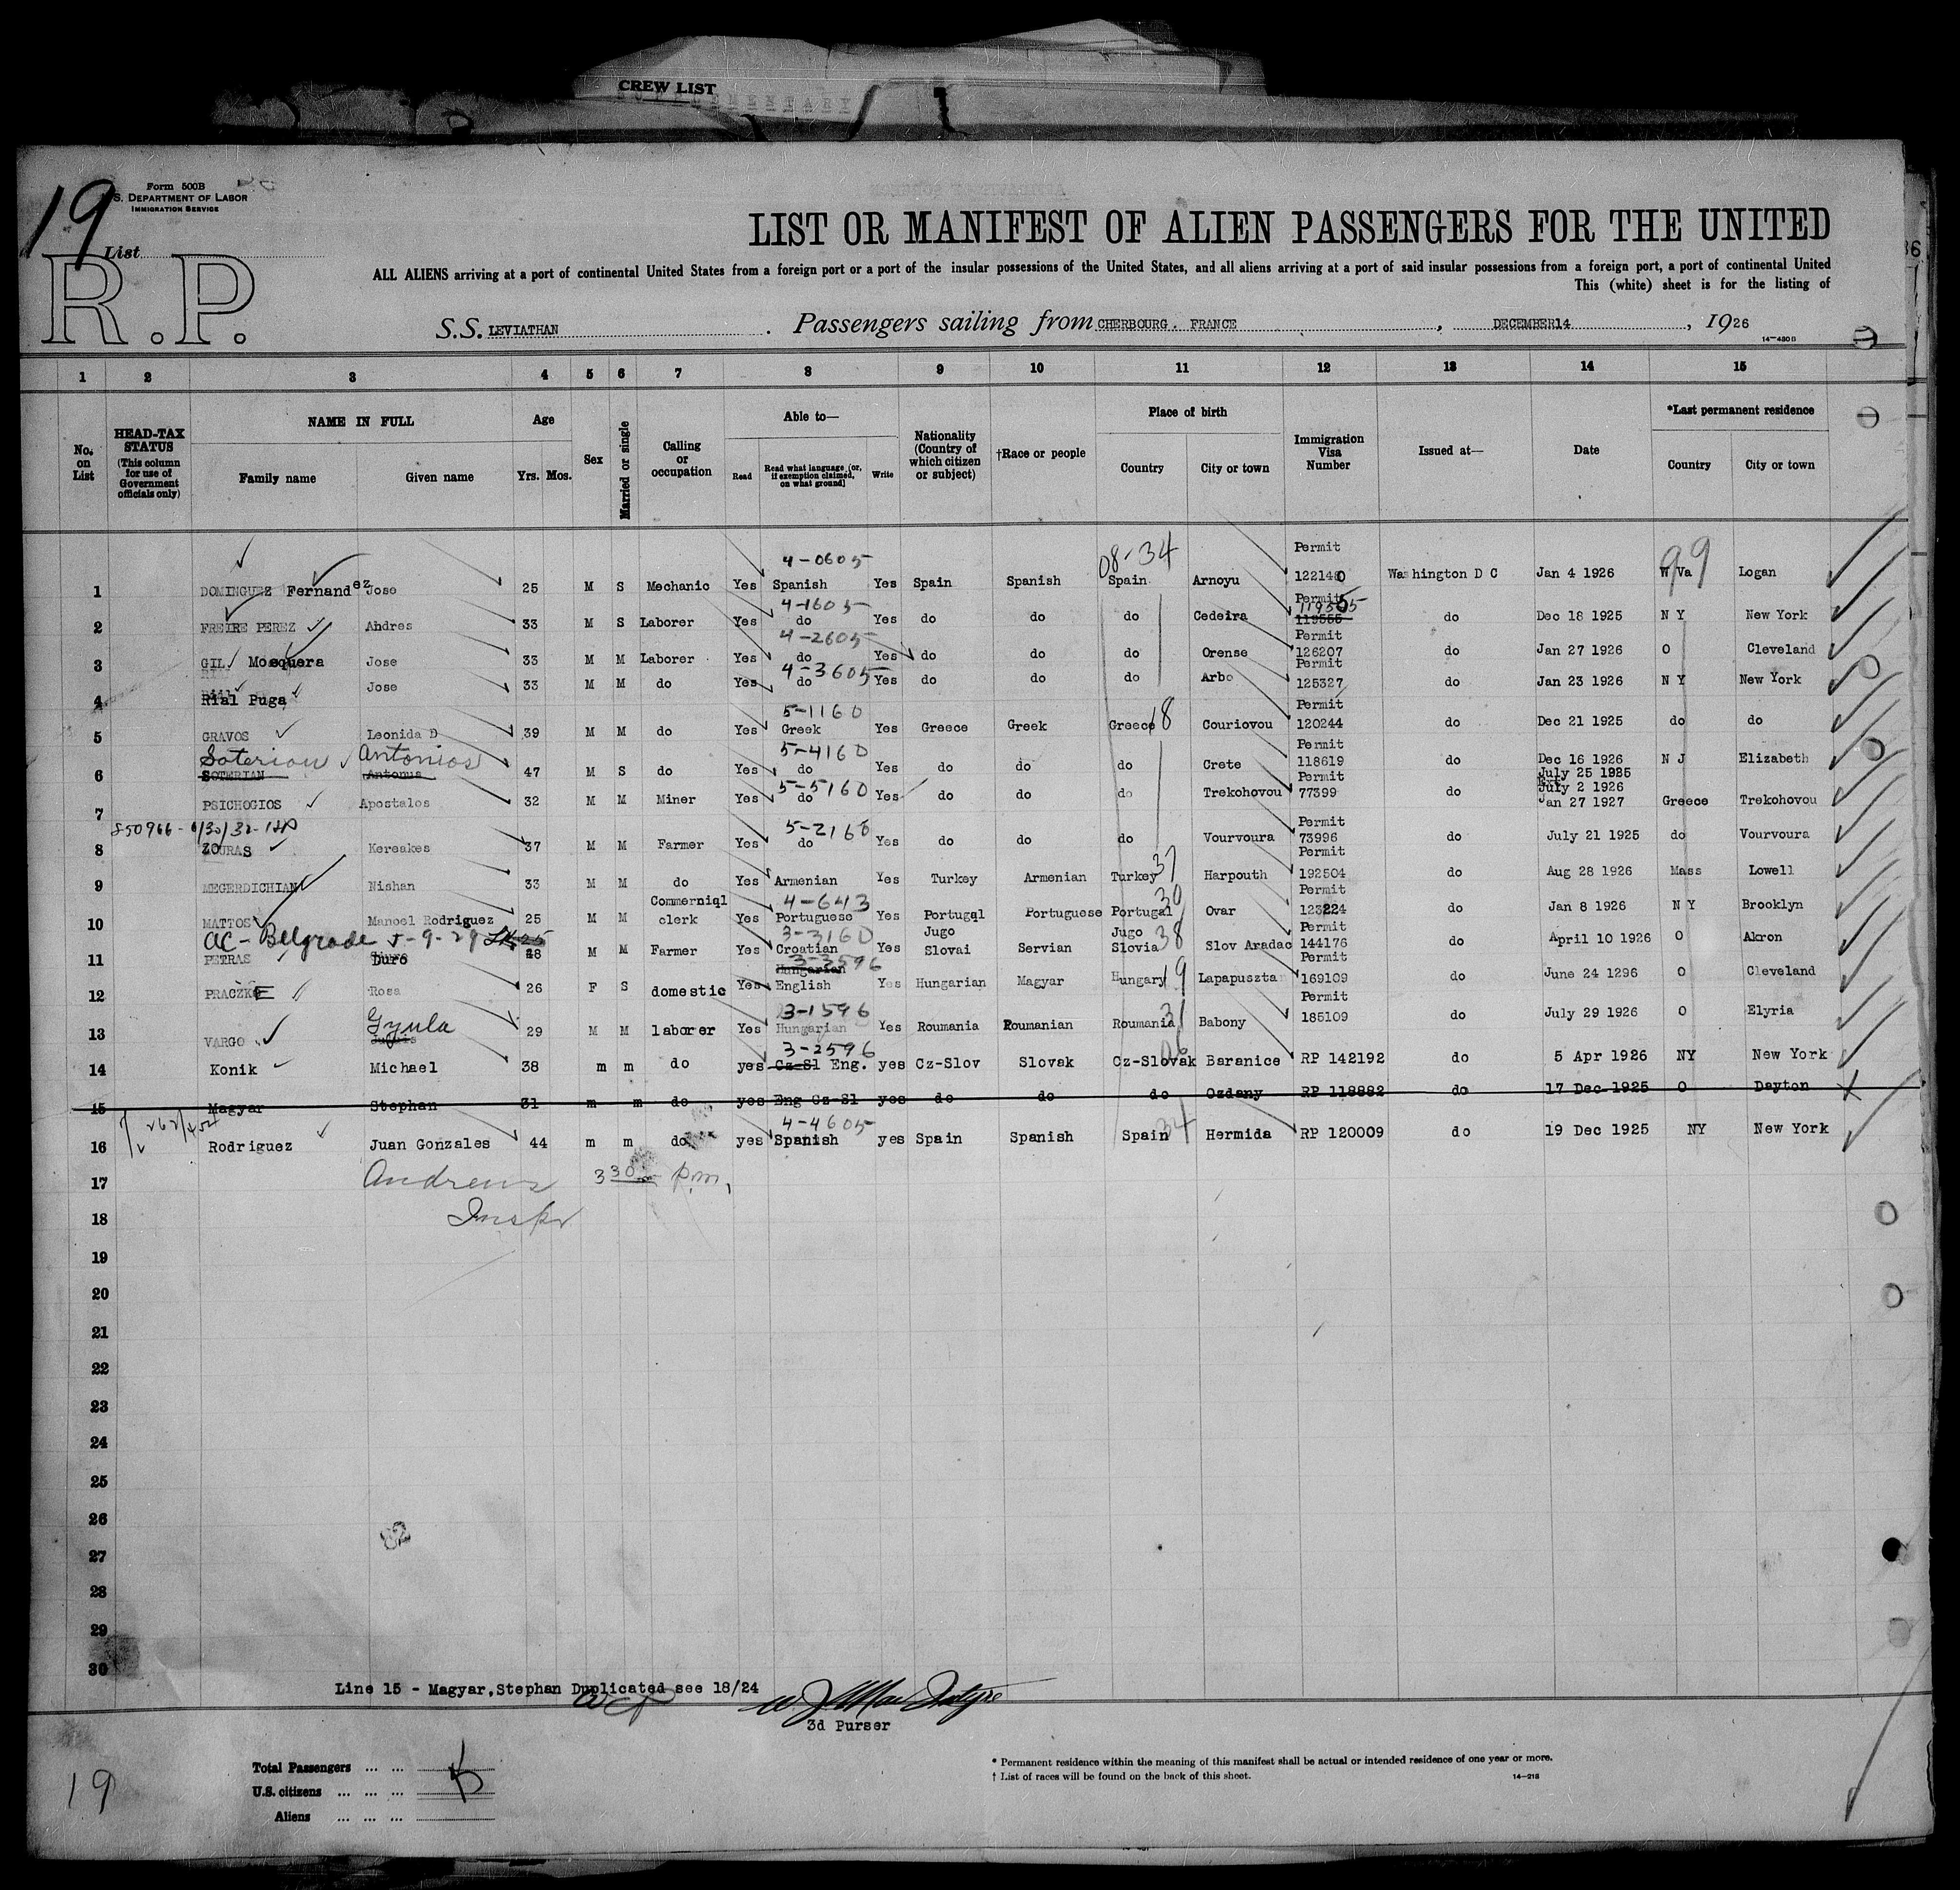 CREW LIST
19
Form 500B
S. DEPARTMENT OF LABOR
IMMIGRATION SERVICE
List
R.P.
LIST OR MANIFEST OF ALIEN PASSENGERS FOR THE UNITED
ALL ALIENS arriving at a port of continental United States from a foreign port or a port of the insular possessions of the United States, and all aliens arriving at a port of said insular possessions from a foreign port, a port of continental United
This (white) sheet is for the listing of
S.S. LEVIATHAN . Passengers sailing from CHERBOURG. FRANCE , DECEMBER14 , 1926
14—430B
1 2 3 4 5 6 7 8 9 10 11 12 13 14 15
No. on List
HEAD-TAX STATUS (This column for use of Government officials only)
NAME IN FULL Family name Given name
Age Yrs. Mos.
Sex
Married or single
Calling or occupation
Able to— Read Read what language [or, if exemption claimed, on what ground] Write
Nationality (Country of which citizen or subject)
†Race or people
Place of birth Country City or town
Immigration Visa Number
Issued at—
Date
*Last permanent residence Country City or town
4-0605 08-34 Permit 99
1 DOMINGUEZ Fernandez Jose 25 M S Mechanic Yes Spanish Yes Spain Spanish Spain Arnoyu 122140 Washington D C Jan 4 1926 W Va Logan
4-1605 Permit 119565
2 FREIRE PEREZ Andres 33 M S Laborer Yes do Yes do do do Cedeira 119555 do Dec 18 1925 N Y New York
4-2605 Permit
3 GIL Mosquera Jose 33 M M Laborer Yes do Yes do do do Orense 126207 do Jan 27 1926 O Cleveland
4-3605 Permit
4 Rial Puga Jose 33 M M do Yes do Yes do do do Arbo 125327 do Jan 23 1926 N Y New York
5-1160 Permit
5 GRAVOS Leonida D 39 M M do Yes Greek Yes Greece Greek Greece 18 Couriovou 120244 do Dec 21 1925 do do
Soteriou Antonios 5-4160 Permit
6 SOTERIAN Antonus 47 M S do Yes do Yes do do do Crete 118619 do Dec 16 1926 N J Elizabeth
5-5160 Permit July 25 1925
July 2 1926
7 PSICHOGIOS Apostalos 32 M M Miner Yes do Yes do do do Trekohovou 77399 do Jan 27 1927 Greece Trekohovou
5-2160 Permit
8 ZOURAS Kereakes 37 M M Farmer Yes do Yes do do do Vourvoura 73996 do July 21 1925 do Vourvoura
Permit
9 MEGERDICHIAN Nishan 33 M M do Yes Armenian Yes Turkey Armenian Turkey 37 Harpouth 192504 do Aug 28 1926 Mass Lowell
Commernial 4-643 30 Permit
10 MATTOS Manoel Rodriguez 25 M M clerk Yes Portuguese Yes Portugal Portuguese Portugal Ovar 123224 do Jan 8 1926 N Y Brooklyn
AC- Belgrade 5-9-29 3-3160 Jugo Jugo 38 Permit
11 PETRAS Duro 48 M M Farmer Yes Croatian Yes Slovai Servian Slovia Slov Aradac 144176 do April 10 1926 O Akron
3-3596 Hungarian Permit
12 PRACZKE Rosa 26 F S domestic Yes English Yes Hungarian Magyar Hungary 19 Lapapuszta 169109 do June 24 1296 O Cleveland
Gyula 3-1596 31 Permit
13 VARGO 29 M M laborer Yes Hungarian Yes Roumania Roumanian Roumania Babony 185109 do July 29 1926 O Elyria
3-2596 06
14 Konik Michael 38 m m do yes Cz-Sl Eng. yes Cz-Slov Slovak Cz-Slovak Baranice RP 142192 do 5 Apr 1926 NY New York
15 Magyar Stephan 31 m m do yes Eng Cz-Sl yes do do do Ozdany RP 118882 do 17 Dec 1925 O Dayton
4-4605 34
16 Rodriguez Juan Gonzales 44 m m do yes Spanish yes Spain Spanish Spain Hermida RP 120009 do 19 Dec 1925 NY New York
17 Andrews 3 30 p.m.
18 Inspr
19
20
21
22
23
24
25
26
27
28
29
30
Line 15 - Magyar,Stephan Duplicated see 18/24
3d Purser
Total Passengers ... ...
U.S. citizens ... ... ...
Aliens ... ... ...
19
* Permanent residence within the meaning of this manifest shall be actual or intended residence of one year or more.
† List of races will be found on the back of this sheet.
14—218